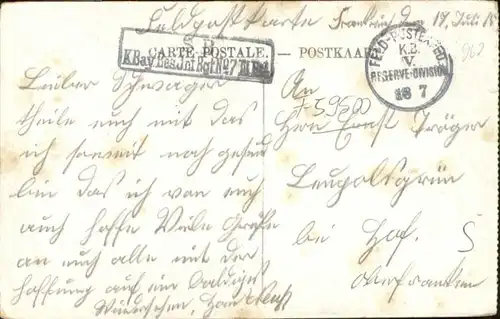 Feldpostkarte Frankreich den 17. Juli 15
CARTE POSTALE. — POSTKAR
K.Bay. Res. Jnf. Rgt. No 7
FELD-POSTEXPED.
K.B.
V.
RESERVE-DIVISION
18 7
Lieber Schwager
teile euch mit das
ich soweit noch gesund
bin das ich von euch
auch hoffe Viele Grüße
an euch alle mit der
Hoffung auf ein baldiges
Wiedersehen, Hans
An
Herrn Ernst Träger
Leupoldsgrün
bei Hof.
Oberfranken